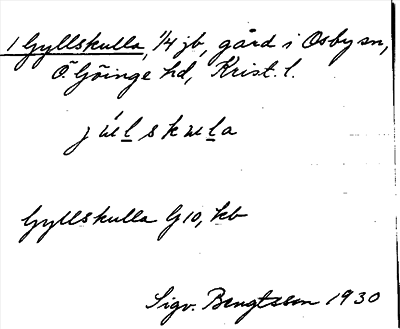 1 Gyllskulla, 1/4 jb, gård i Osby sn,
Ö. Göinge hd, Krist. l.
Gyllskulla G10, kb
Sigv. Bengtsson 1930